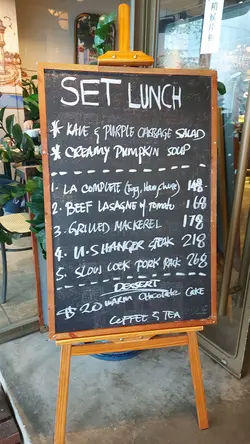 稍候片刻
SET LUNCH
* KALE & PURPLE CABBAGE SALAD
* CREAMY PUMPKIN SOUP
1. LA COMPLETE (Egg, Ham, Cheese) 148.
2. BEEF LASAGNE w/ tomato 168
3. GRILLED MACKEREL 178
4. U.S HANGER STEAK 218
5. SLOW COOK PORK RACK 268
DESSERT
+$20 WARM CHOCOLATE CAKE
COFFEE & TEA